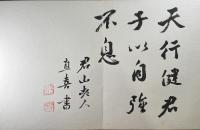 天行健君
子以自強
不息
君山老人
直喜書